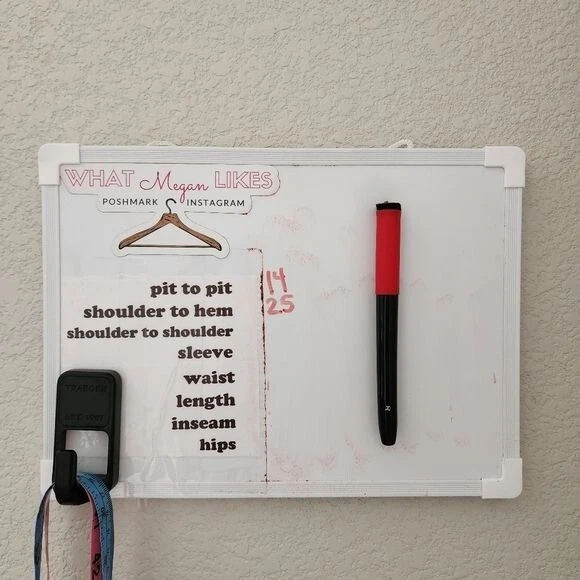 WHAT Megan LIKES
POSHMARK INSTAGRAM
pit to pit 14
shoulder to hem 25
shoulder to shoulder
sleeve
waist
length
inseam
hips
TRAEGER